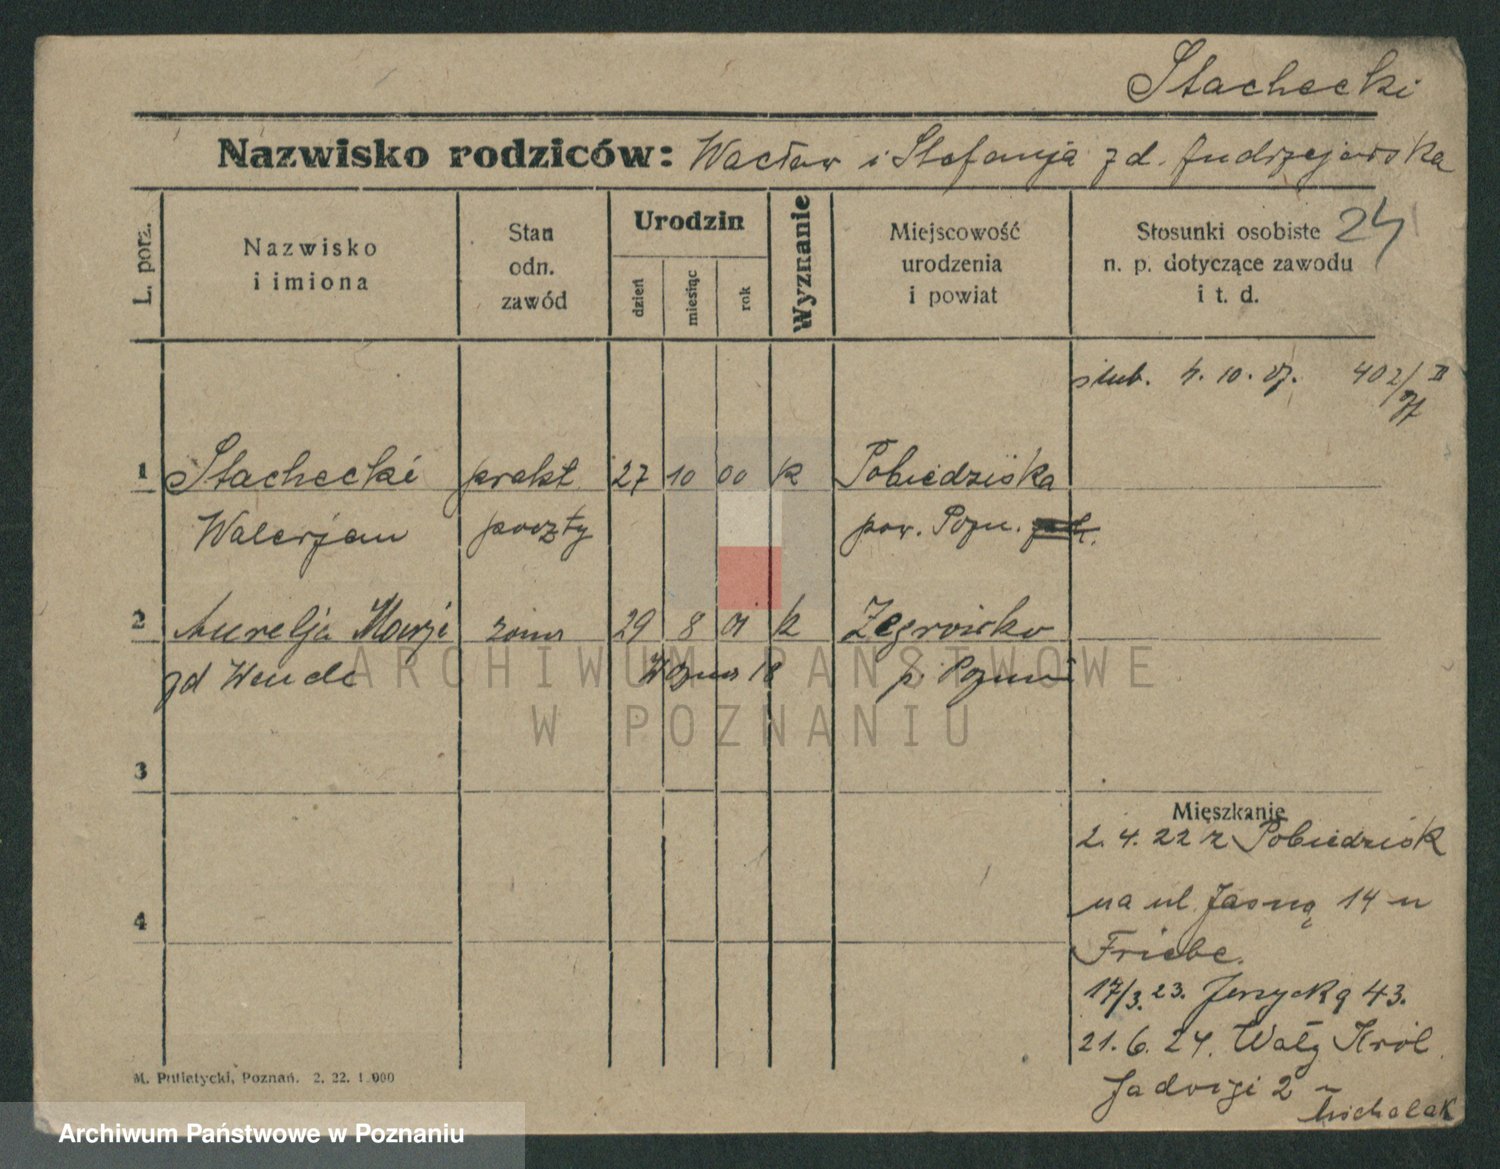 Stachecki
Nazwisko rodziców: Wacław i Stefanja zd. Andrzejewska
L. porz.
Nazwisko
i imiona
Stan
odn.
zawód
Urodzin
dzień
miesiąc
rok
Wyznanie
Miejscowość
urodzenia
i powiat
Stosunki osobiste
n. p. dotyczące zawodu
i t. d.
24
ślub. 4. 10. 402/II
1 Stachecki prakt 27 10 00 k Pobiedziska
Walerjan poczty pow. Pozn.
2 Aurelja 29 8 01 k
zd Wende
ARCHIWUM PAŃSTWOWE
W POZNANIU
3
Mieszkanie
2. 4. 22 z Pobiedzisk
na ul Jasną 14 u
4
Friebe.
17/3. 23. Jerzycką 43.
21. 6. 24. Wały Król
Jadwigi 2 –
Michalak
M. Putiatycki, Poznań. 2. 22. 1.000
Archiwum Państwowe w Poznaniu